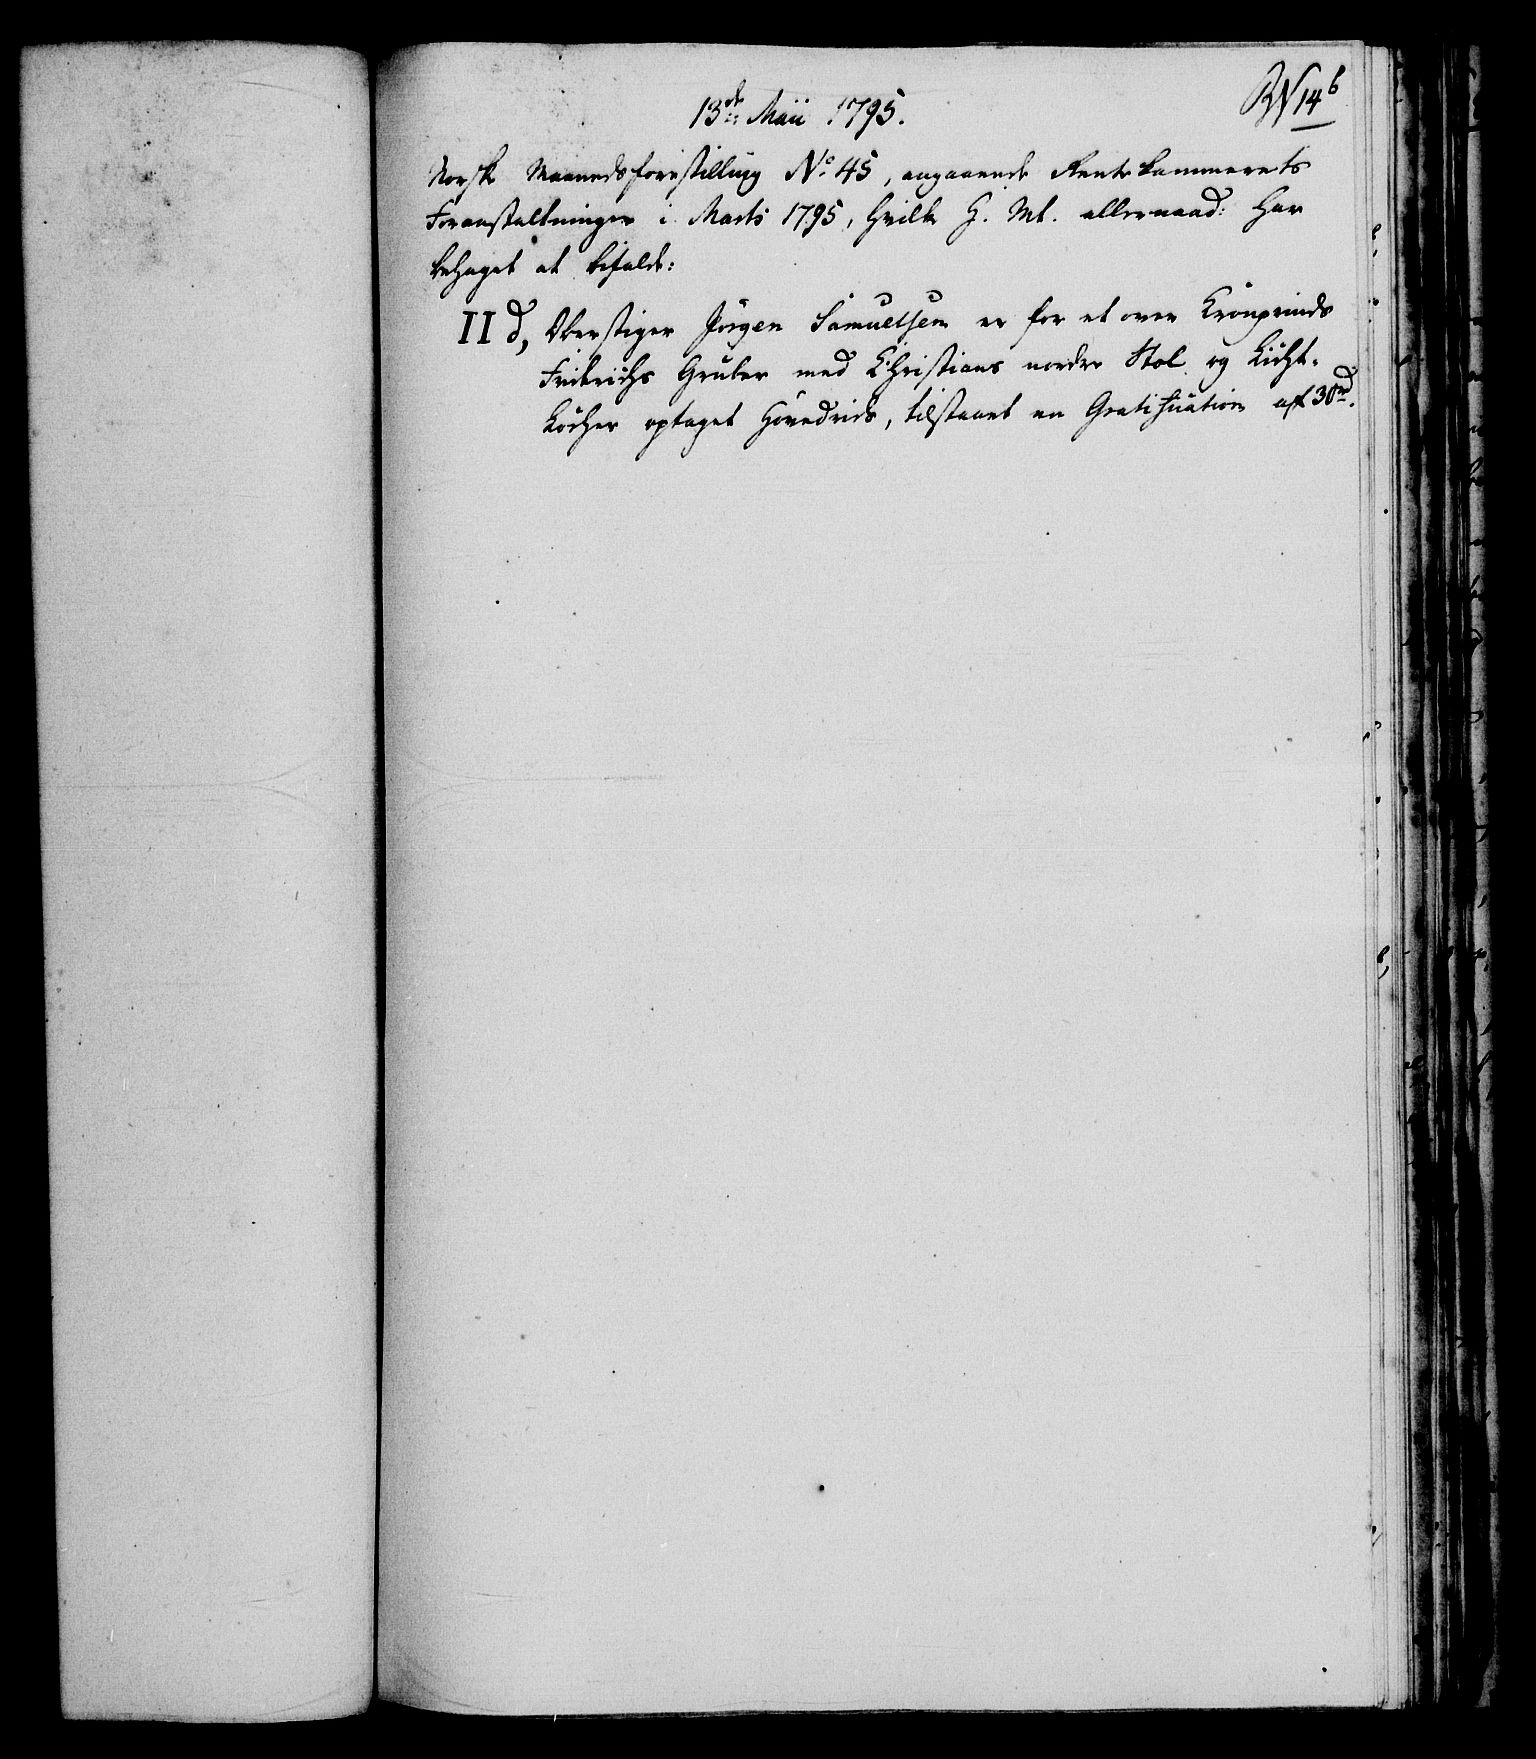 14b
13de Maii 1795.
Norske Maanedsforestilling No 45, angaaende Rentekammerets
Foranstaltninger i Marts 1795, hvilke H. Mt. allernaad: har
behaget at bifalde:
II d, Oberstiger Jörgen Samuelsen er for et over Cronprinds
Friderichs Gruber med Christians nordre Stol og Licht-
Löcher optaget Hovedrids, tilstaaet en Gratification af 30 rd.